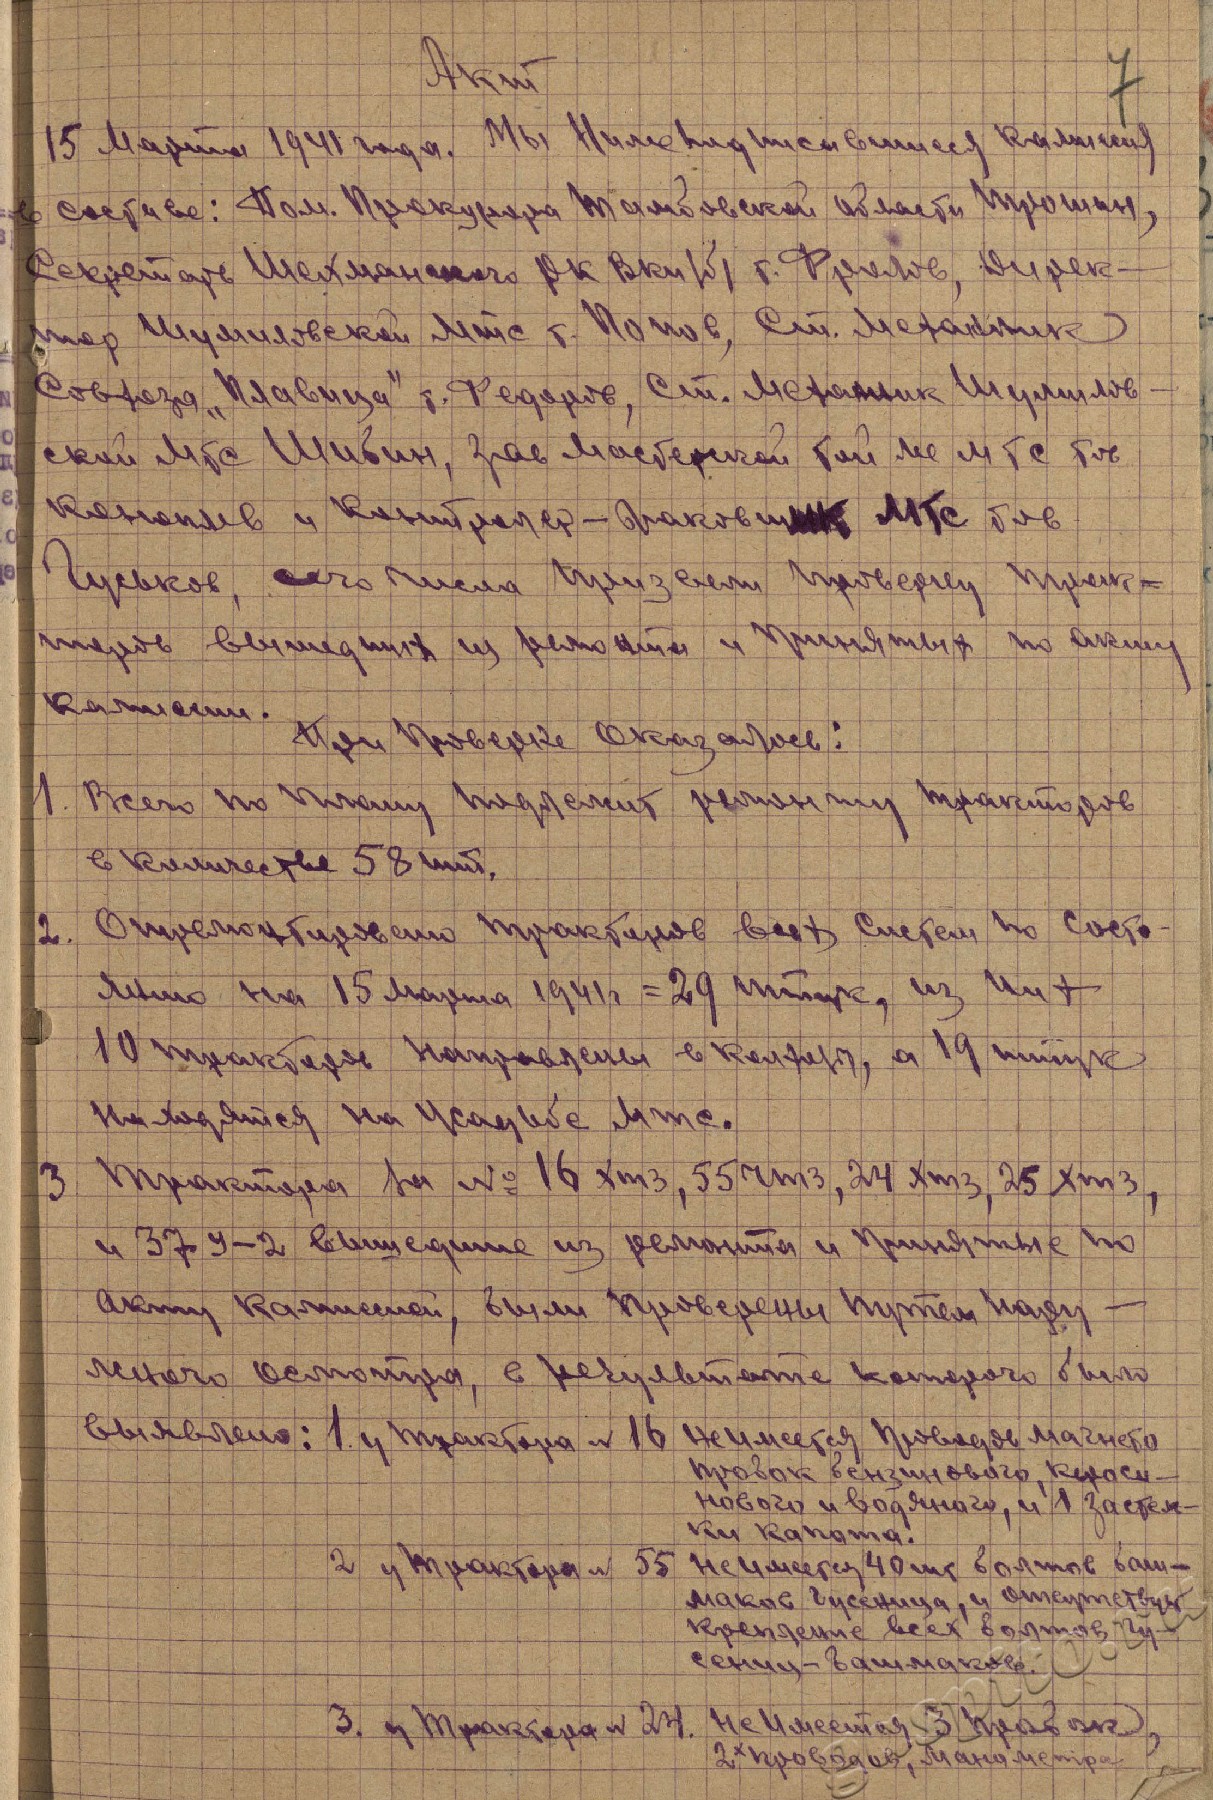 Акт
7
15 Марта 1941 года. Мы Нижеподписавшиеся камисия
в составе: Пом. Прокурора Тамбовской области Трошин,
Секретарь Шехманского РК ВКП(б) т. Фролов, Дирек-
тор Шумиловской МТС т. Попов, Ст. Механик
Совхоза „Плавица" т. Федоров, Ст. Механик Шумилов-
ской МТС Шибин, Зав Мастерской той же МТС тов
Коноплев и Контролер-браковщик МТС тов
Гуськов, сего числа произвели проверку трак-
торов вышедших из ремонта и принятых по акту
камисии.
При проверке оказалось:
1. Всего по плану подлежит ремонту тракторов
в количестве 58 шт.
2. Отремонтировано тракторов всех систем по состо-
янию на 15 марта 1941г = 29 штук, из них
10 тракторов направлены в колхозы, а 19 штук
находятся на усадьбе МТС.
3 Трактора за № 16 ХТЗ, 55 ЧТЗ, 24 ХТЗ, 25 ХТЗ,
и 37 У-2 вышедшие из ремонта и принятые по
акту камиссией, были проверены путем нару-
жного осмотра, в результате которого было
выявлено: 1. у трактора № 16 не имеется проводов магнето
пробок бензинового, кероси-
нового и водяного, и 1 застеж-
ки капота.
2 у трактора № 55 не имеется 40 шт болтов баш-
маков гусеница, и отсутствует
крепление всех болтов гу-
сениц-башмаков.
3. у трактора № 24. не имеется 3 пробок,
2х проводов, манометра